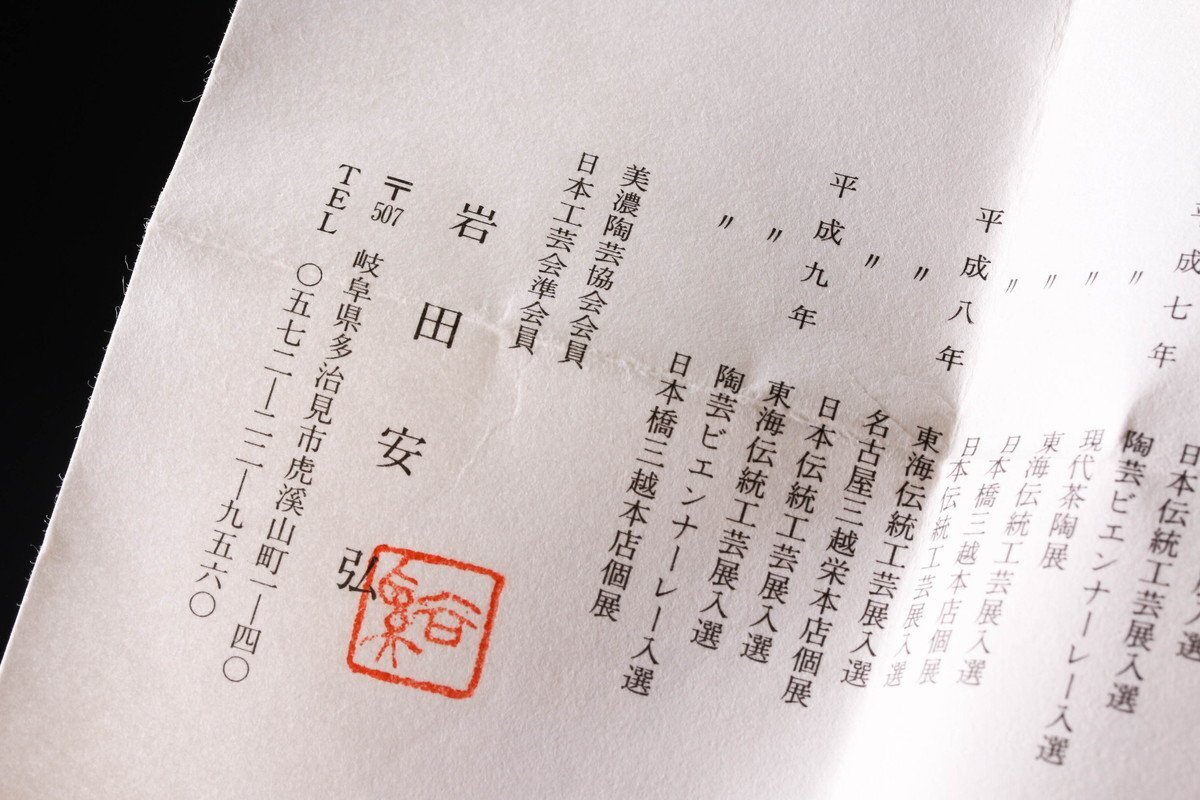 日本伝統工芸展入選
平成七年 陶芸ビエンナーレ入選
〃 現代茶陶展
〃 東海伝統工芸展入選
〃 日本橋三越本店個展
〃 日本伝統工芸展入選
平成八年 東海伝統工芸展入選
〃 名古屋三越栄本店個展
〃 日本伝統工芸展入選
平成九年 東海伝統工芸展入選
〃 陶芸ビエンナーレ入選
〃 日本橋三越本店個展
美濃陶芸協会会員
日本工芸会準会員
岩田安弘
〒507 岐阜県多治見市虎溪山町一―四〇
TEL 〇五七二―二二―九五六〇